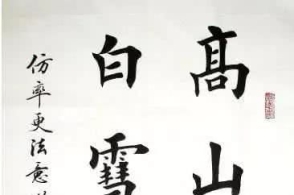 高山
白雪
仿率更法意